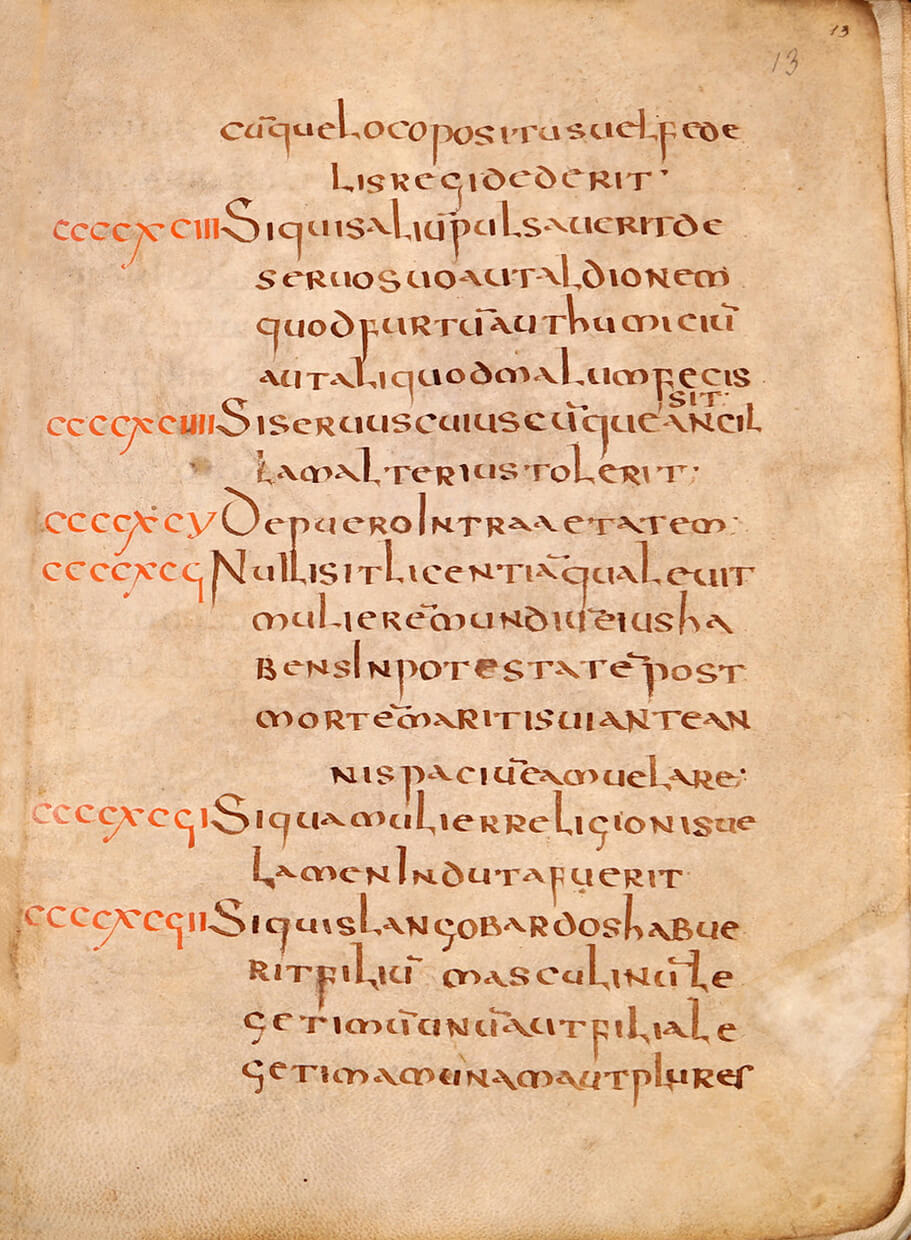 13
13
cūquelocopositusuelfede
lisregidederit·
ccccxciii Siquisaliūpulsaueritde
seruosuoautaldionem
quodfurtūauthumiciū
autaliquodmalumfecis
sit:
ccccxciiii Siseruuscuiuscūqueancil
lamalteriustolerit;
ccccxcv Depuerointraaetatem
ccccxcϛ Nullisitlicentiāqualeuit
mulierēmundiūeiusha
bensinpotestatēpost
mortēmaritisuiantean
nispaciūeamuelare;
ccccxcϛi Siquamulierreligionisue
lamenindutafuerit
ccccxcϛii Siquislangobardoshabue
ritfiliū masculinūle
getimūunūautfiliale
getimamunamautplures